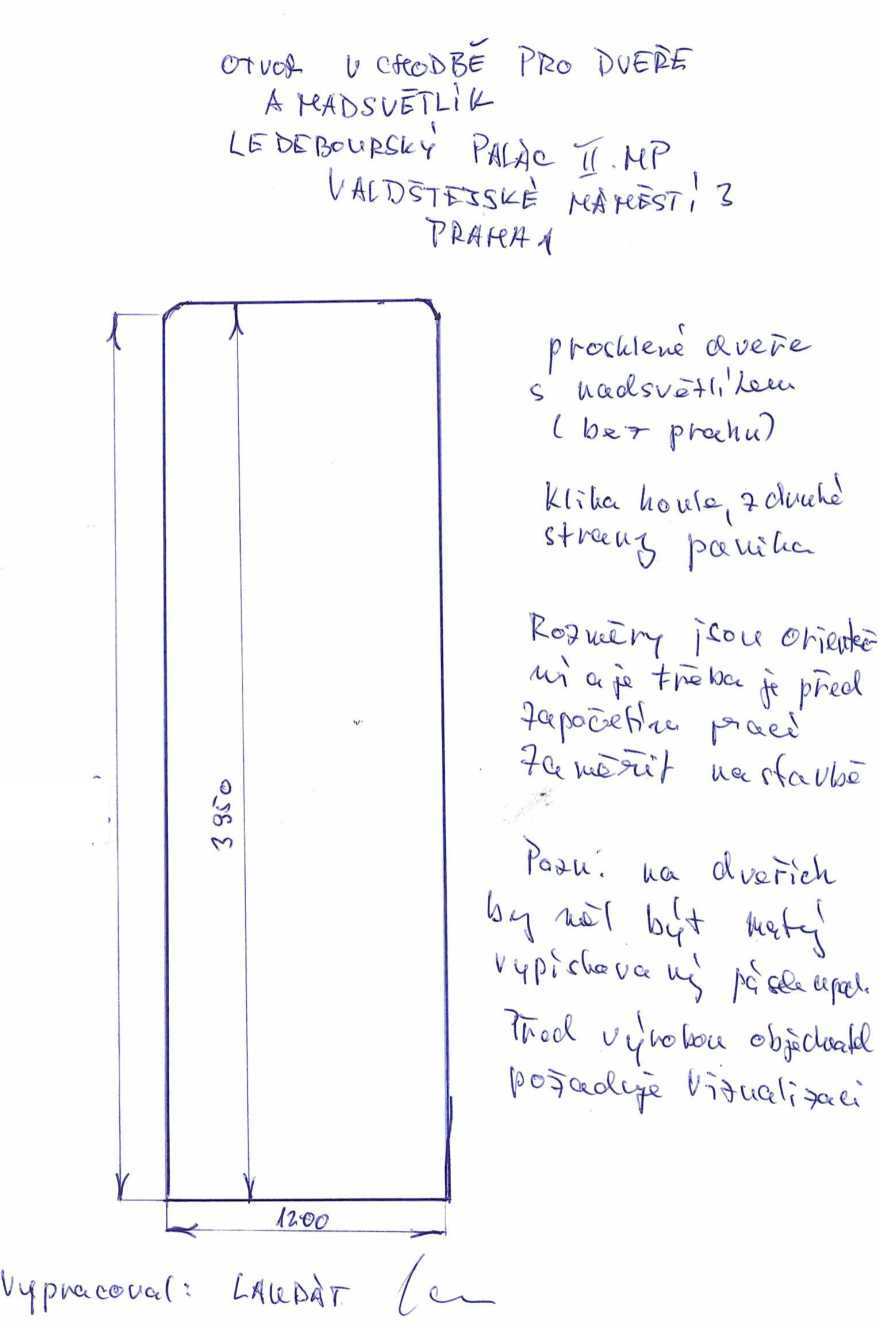 OTVOR V CHODBĚ PRO DVEŘE
A NADSVĚTLÍK
LEDEBOURSKÝ PALÁC II. NP
VALDŠTEJSKÉ NÁMĚSTÍ 3
PRAHA 1
prosklené dveře
s nadsvětlíkem
(bez prahu)
Klika koule, z druhé
strany panika
Rozměry jsou orientač
ní a je třeba je před
započetím prací
zaměřit na stavbě
3950
Pozn. na dveřích
by měl být matný
vypískovaný pásek apod.
Před výrobou objednatel
požaduje vizualizaci
1200
Vypracoval: LAUDÁT